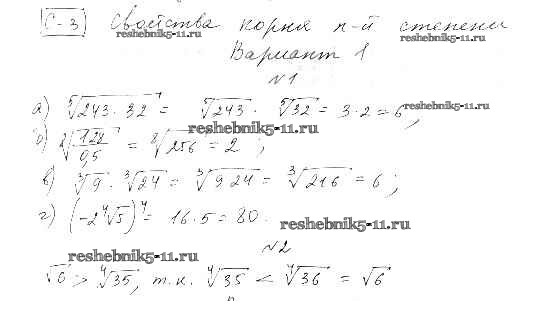 С-3 Свойства корня n-й степени
reshebnik5-11.ru reshebnik5-11.ru
Вариант 1
N1
а) ⁵√(243·32) = ⁵√243 · ⁵√32 = 3·2 = 6, reshebnik5-11.ru
б) ⁸√(128/0,5) = ⁸√256 = 2; reshebnik5-11.ru
в) ³√9 · ³√24 = ³√(9·24) = ³√216 = 6;
г) (-2⁴√5)⁴ = 16·5 = 80. reshebnik5-11.ru
N2
reshebnik5-11.ru
√6 > ⁴√35, т.к. ⁴√35 < ⁴√36 = √6